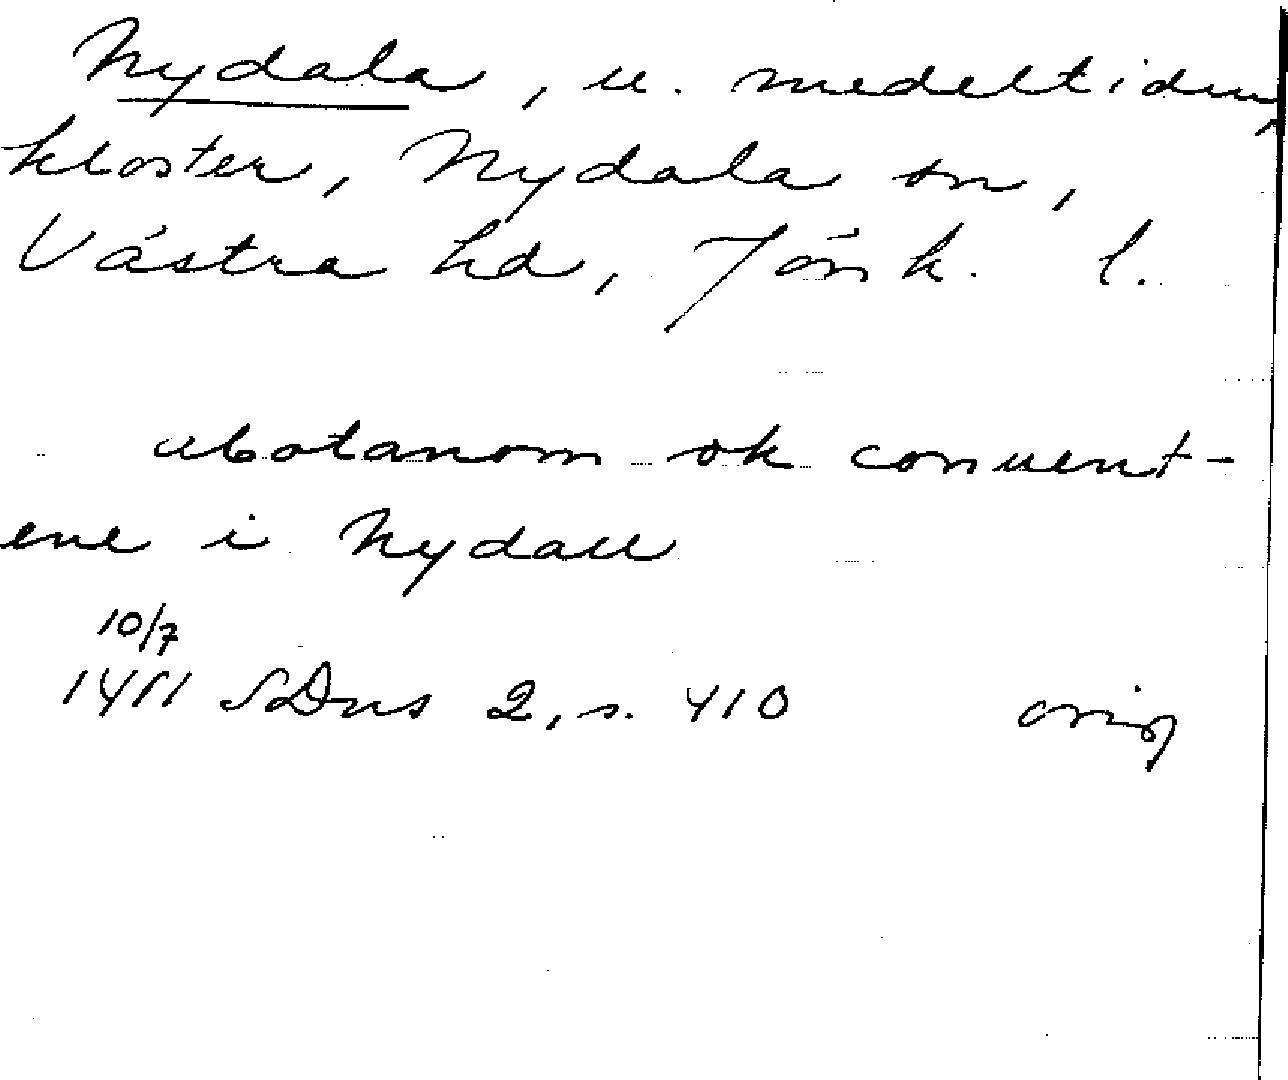 Nydala, u. medeltiden,
kloster, Nydala sn,
Västra hd, Jönk. l.
abotanom ok conuent-
ene i Nydall
10/7
1411 SDns 2, s. 410 orig